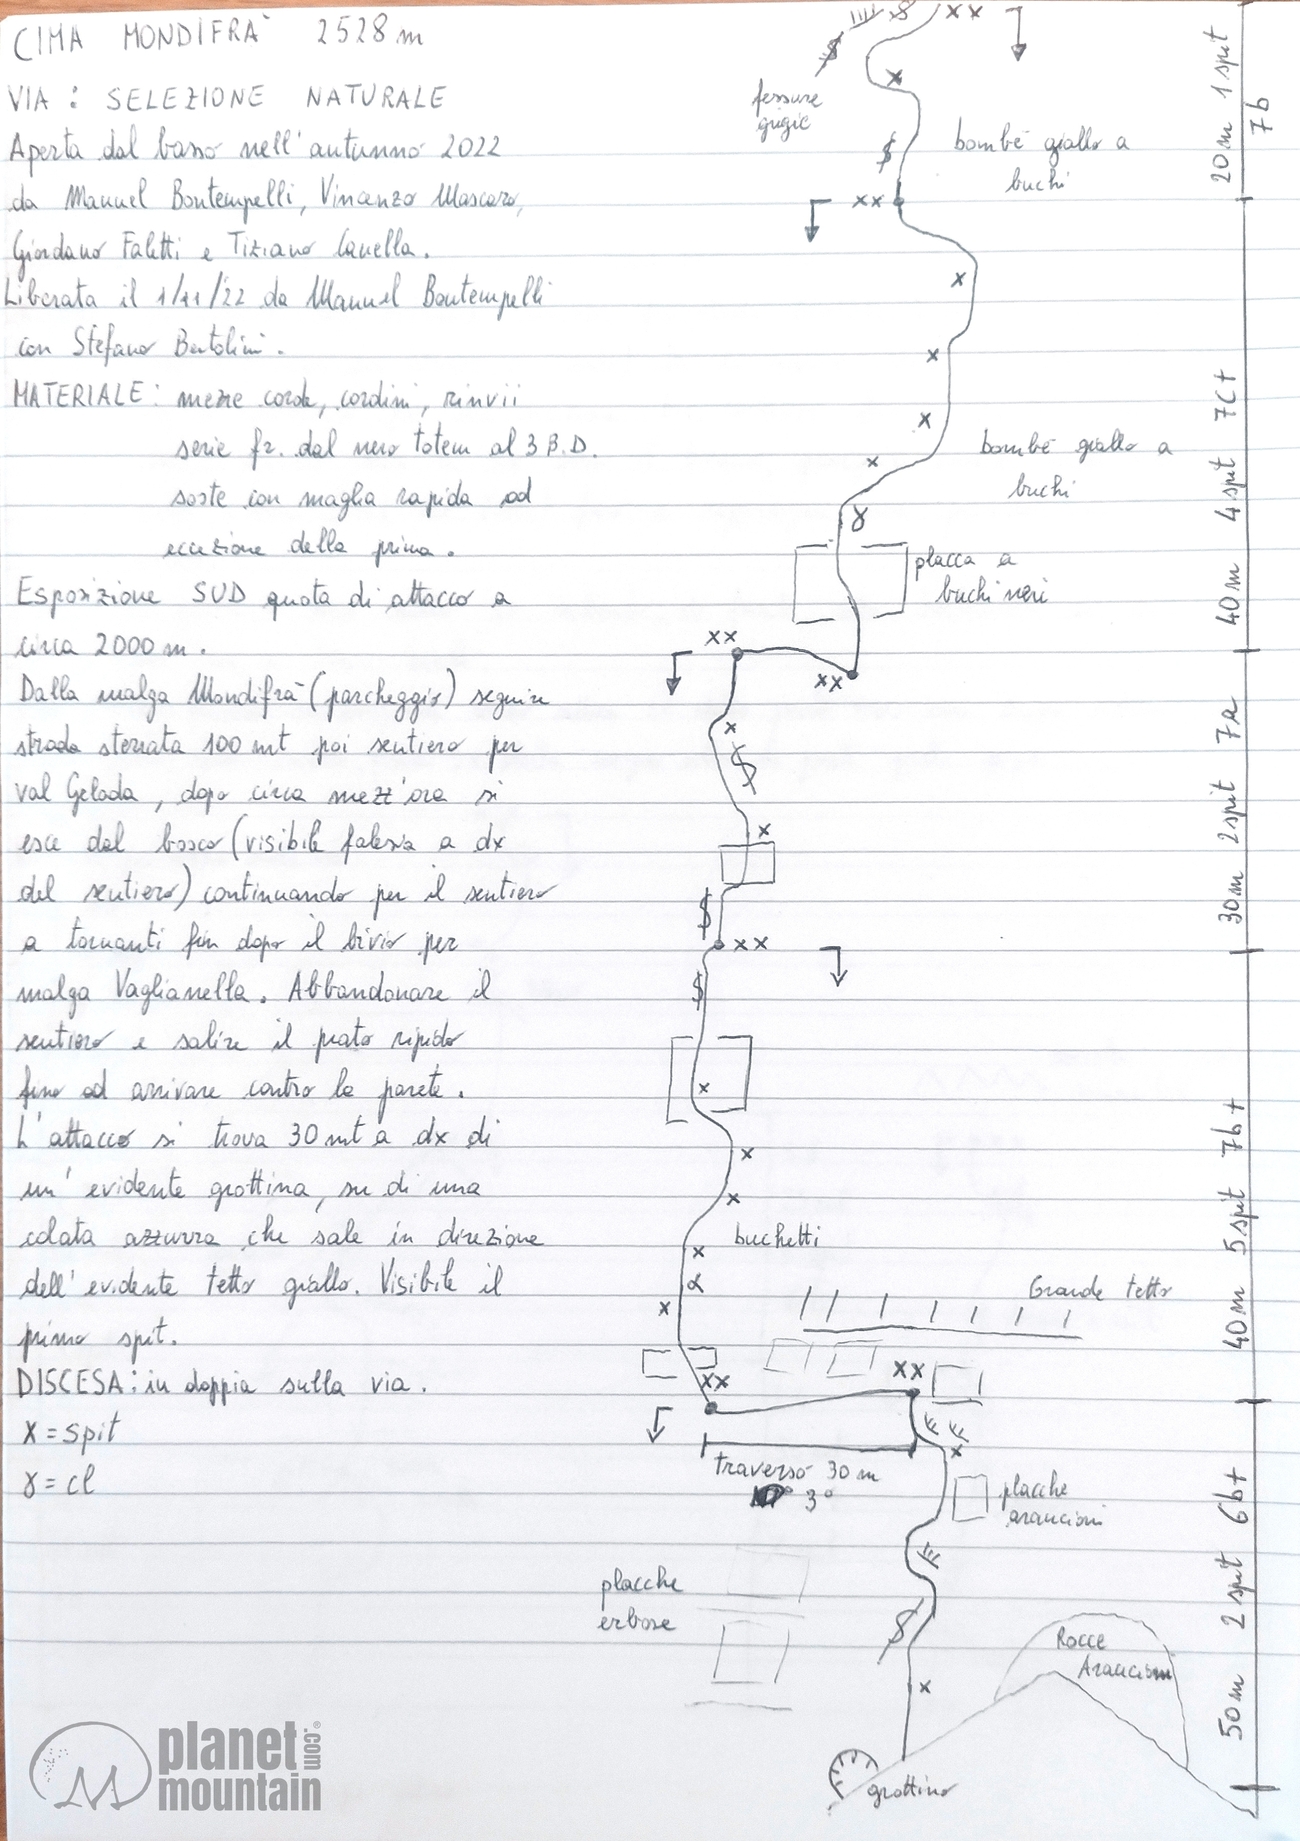 CIMA MONDIFRÀ 2528 m
VIA: SELEZIONE NATURALE
Aperta dal basso nell'autunno 2022
da Manuel Bontempelli, Vincenzo Mascaro,
Giordano Faletti e Tiziano Canella.
Liberata il 1/11/22 da Manuel Bontempelli
con Stefano Bertolini.
MATERIALE: mezze corde, cordini, rinvii
serie fr. dal nero totem al 3 B.D.
soste con maglia rapida ad
eccezione della prima.
Esposizione SUD quota di attacco a
circa 2000 m.
Dalla malga Mondifrà (parcheggio) seguire
strada sterrata 100 mt poi sentiero per
val Gelada, dopo circa mezz'ora si
esce dal bosco (visibile falesia a dx
del sentiero) continuando per il sentiero
a tornanti fin dopo il bivio per
malga Vaglianella. Abbandonare il
sentiero e salire il prato ripido
fino ad arrivare contro la parete.
L'attacco si trova 30 mt a dx di
un'evidente grottina, su di una
colata azzurra che sale in direzione
dell'evidente tetto giallo. Visibile il
primo spit.
DISCESA: in doppia sulla via.
X = spit
γ = cl
xx
fessure
gugie
bombé giallo a
buchi
20m 1 spit
7b
xx
bombé giallo a
buchi
40m 4 spit 7c+
placca a
buchi neri
xx
xx
30m 2 spit 7a
xx
buchetti
40m 5 spit 7b+
Grande tetto
xx
xx
traverso 30 m
3°
placche
arancioni
placche
erbose
50m 2 spit 6b+
Rocce
Arancioni
grottino
planet
mountain
.com